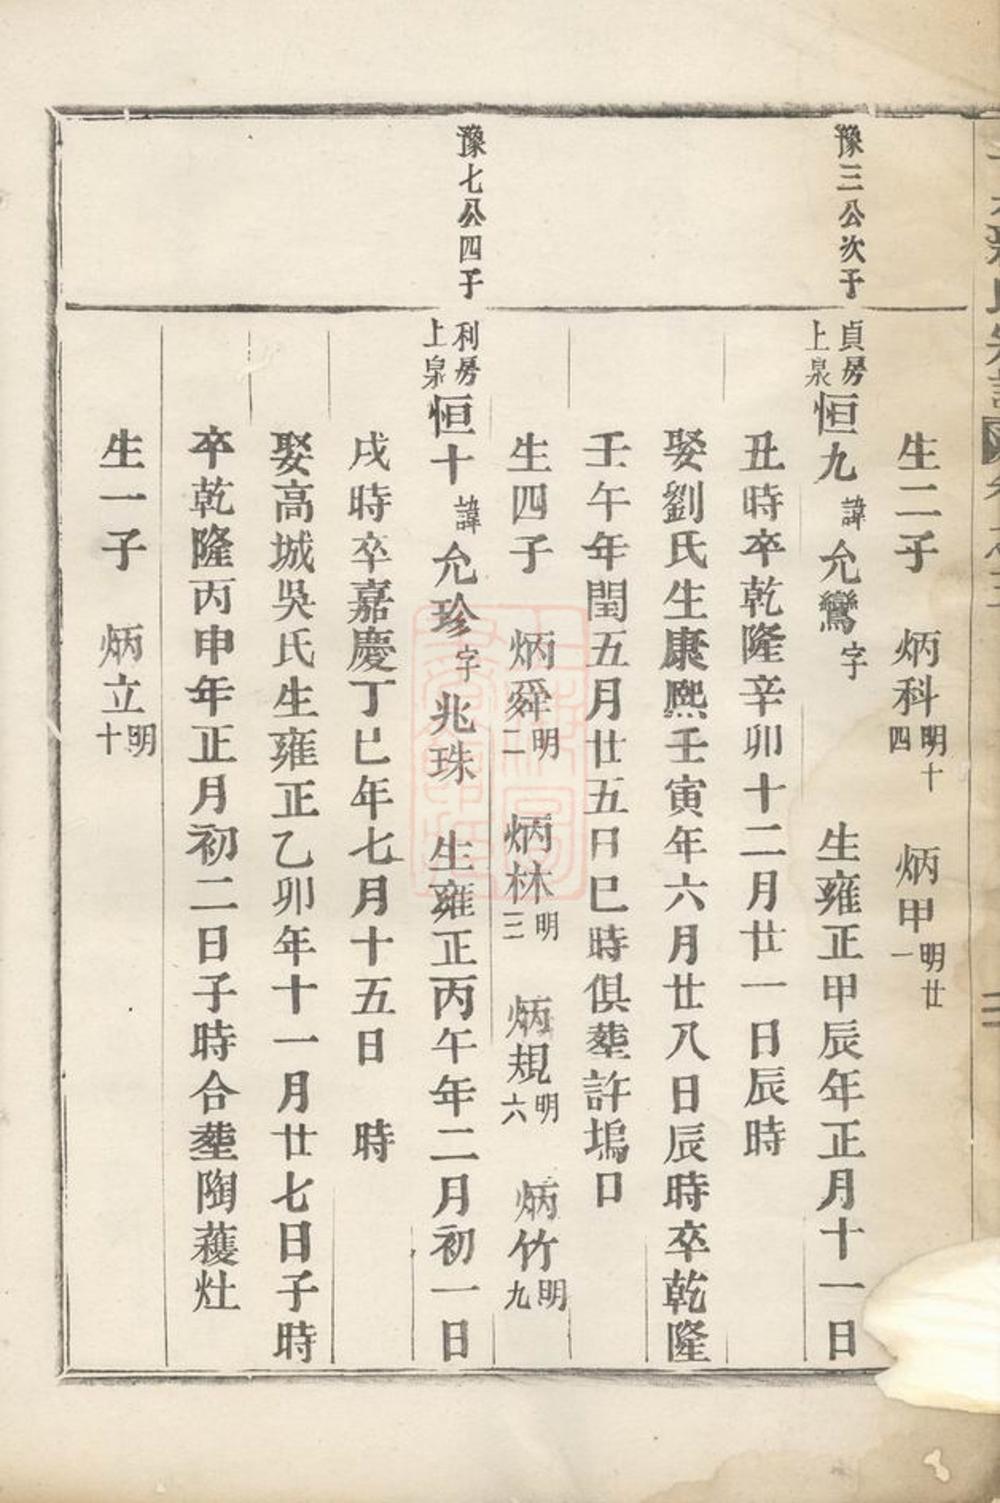 生二子 炳科明十四 炳甲明廿一
豫三公次子
貞房上泉恒九諱允鸞字 生雍正甲辰年正月十一日
丑時卒乾隆辛卯十二月廿一日辰時
娶劉氏生康熙壬寅年六月廿八日辰時卒乾隆
壬午年閏五月廿五日巳時俱塟許塢口
生四子 炳舜明二 炳林明三 炳規明六 炳竹明九
豫七公四子
利房上泉恒十諱允珍字兆珠 生雍正丙午年二月初一日
戌時卒嘉慶丁巳年七月十五日 時
娶高城吳氏生雍正乙卯年十一月廿七日子時
卒乾隆丙申年正月初二日子時合塟陶蓑灶
生一子 炳立明十